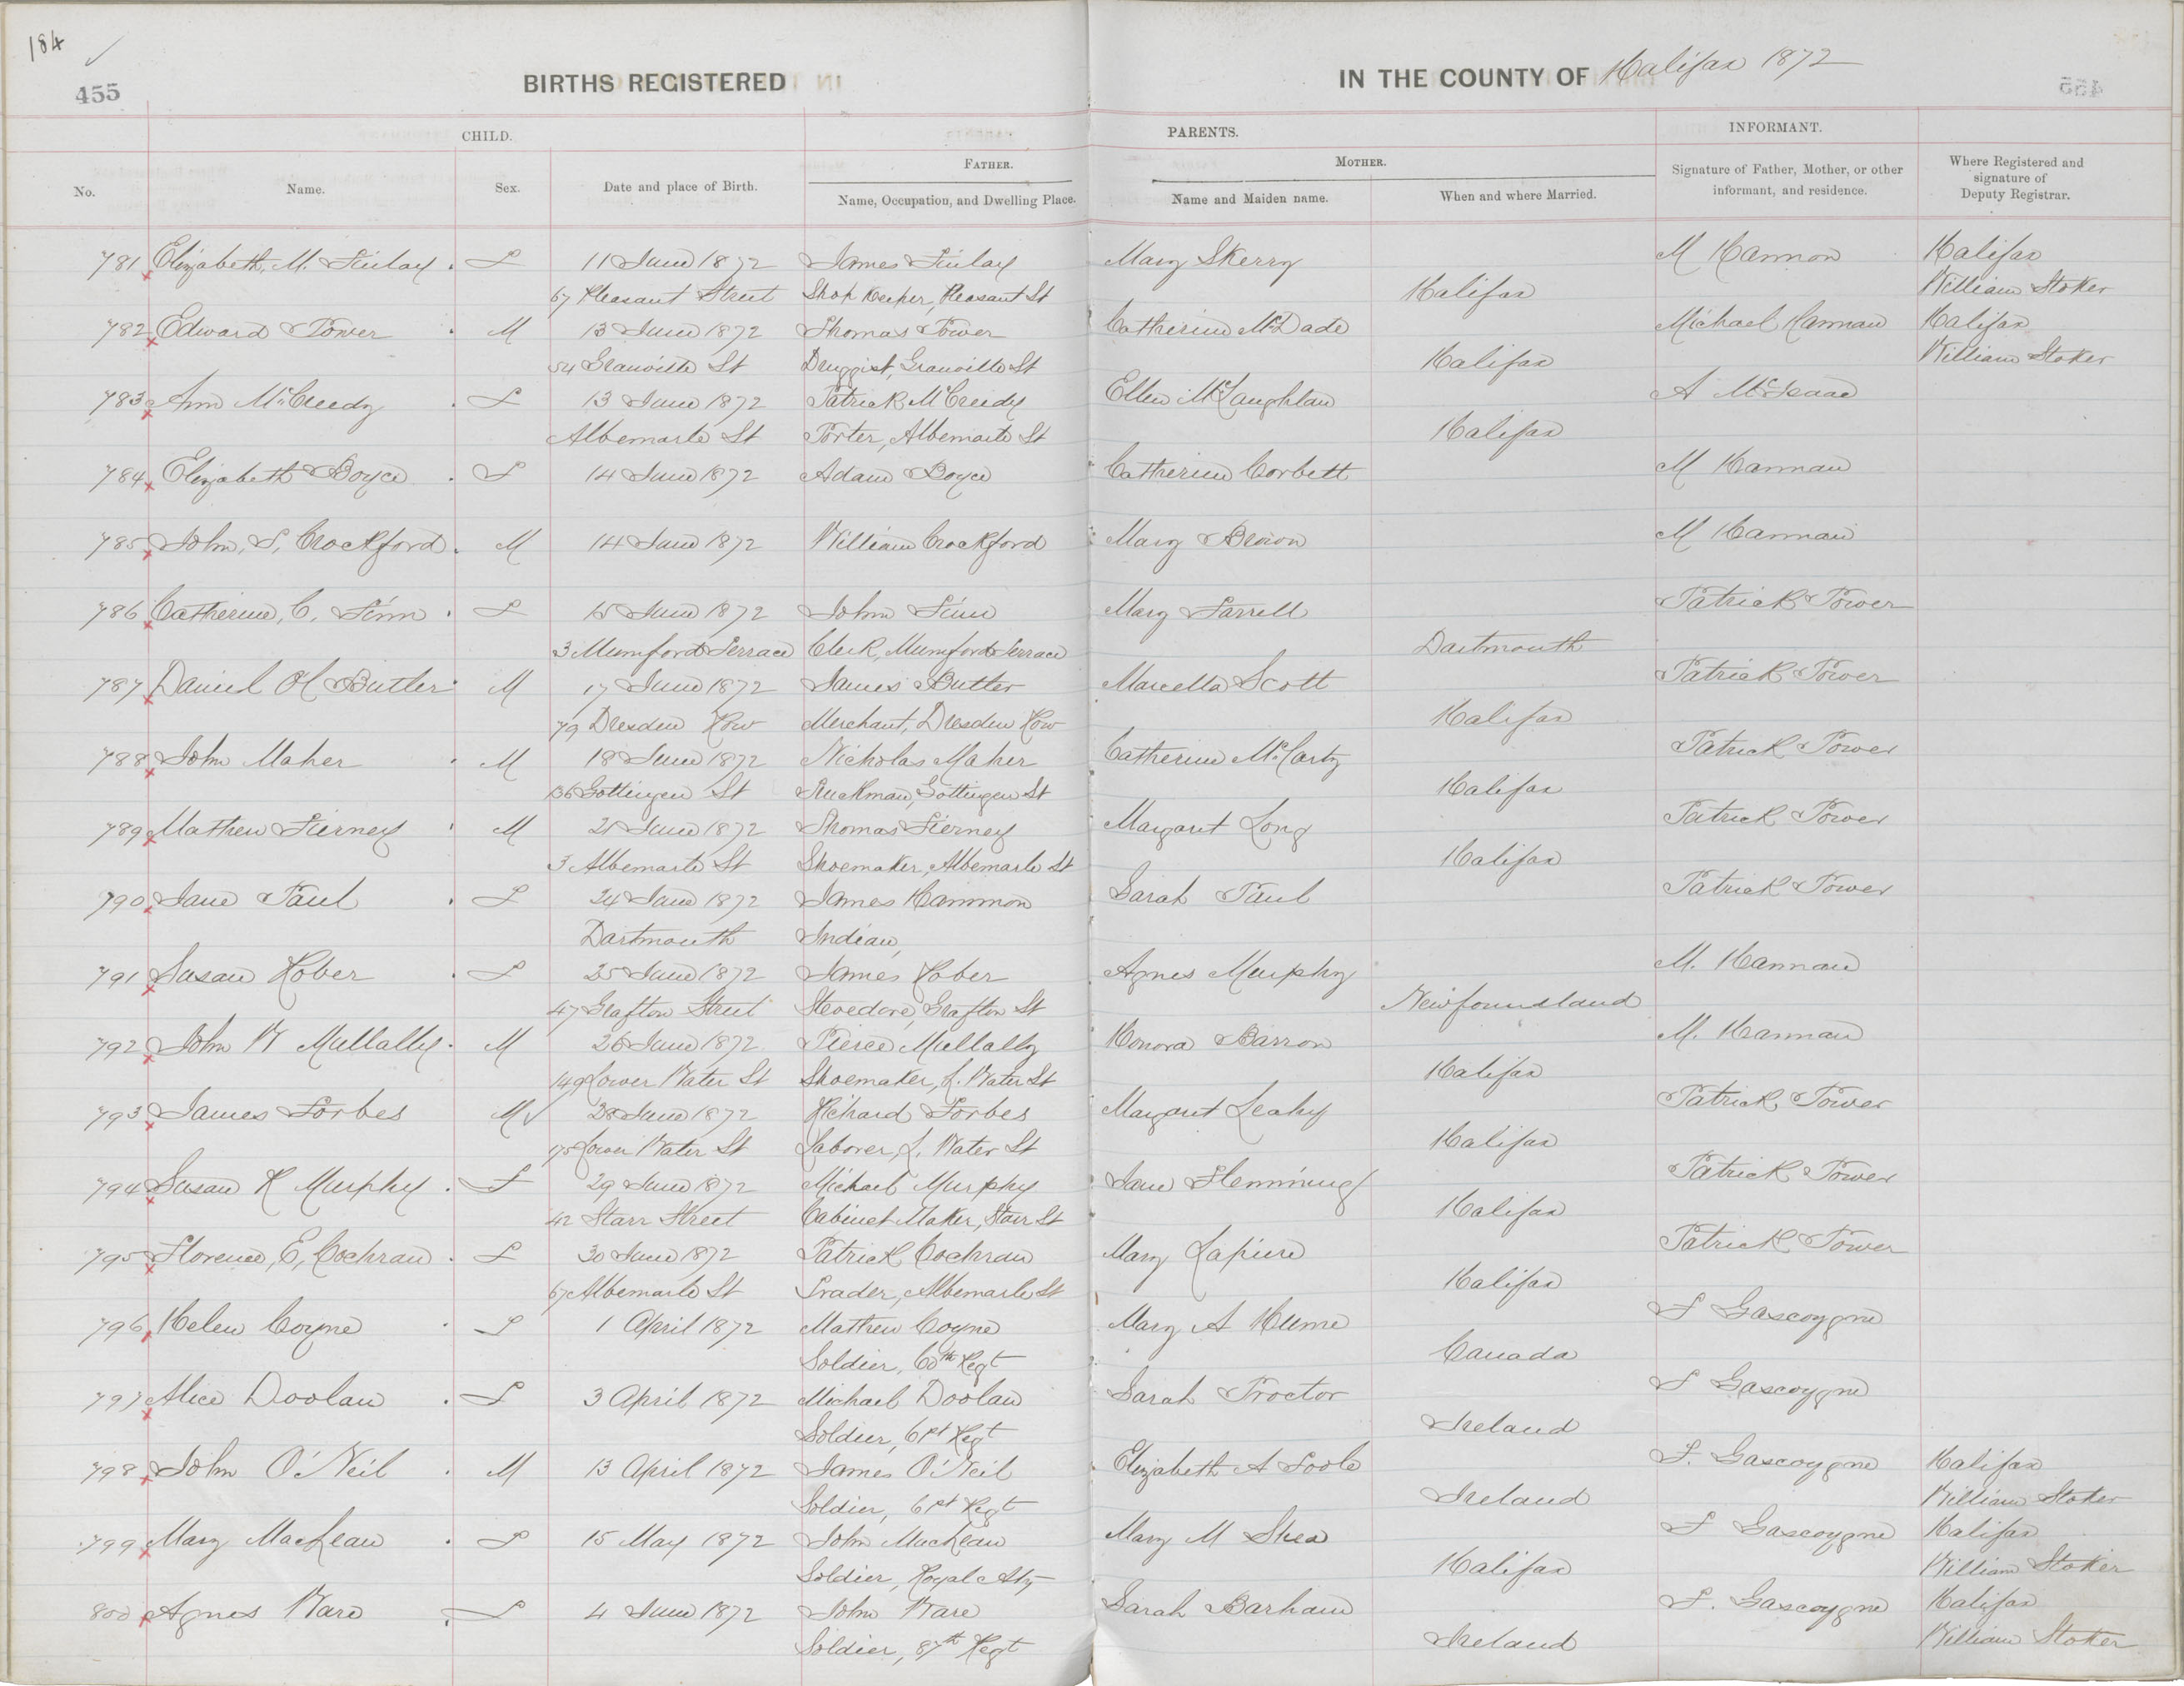 184
455
BIRTHS REGISTERED
IN THE COUNTY OF Halifax 1872
CHILD.
PARENTS.
INFORMANT.
No.
Name.
Sex.
Date and place of Birth.
FATHER.
Name, Occupation, and Dwelling Place.
MOTHER.
Name and Maiden name.
When and where Married.
Signature of Father, Mother, or other informant, and residence.
Where Registered and signature of Deputy Registrar.
781 Elizabeth, M. Finlay F 11 June 1872 James Finlay Mary Skerry M Hannon Halifax
67 Pleasant Street Shop Keeper, Pleasant St Halifax William Stoker
782 Edward Power M 13 June 1872 Thomas Power Catherine McDade Michael Hannan Halifax
54 Granville St Druggist, Granville St Halifax William Stoker
783 Ann McCreedy F 13 June 1872 Patrick McCreedy Ellen McLaughlan A McIsaac
Albemarle St Porter, Albemarle St Halifax
784 Elizabeth Boyce F 14 June 1872 Adam Boyce Catherine Corbett M Hannan
785 John, S, Crockford M 14 June 1872 William Crockford Mary Brown M Hannan
786 Catherine, C, Finn F 15 June 1872 John Finn Mary Farrell Patrick Power
3 Mumford Terrace Clerk, Mumford Terrace Dartmouth
787 Daniel H Butler M 17 June 1872 James Butler Marcella Scott Patrick Power
79 Dresden Row Merchant, Dresden Row Halifax
788 John Maher M 18 June 1872 Nicholas Maher Catherine McCarty Patrick Power
136 Gottingen St Truckman, Gottingen St Halifax
789 Mathew Tierney M 21 June 1872 Thomas Tierney Margaret Long Patrick Power
3 Albemarle St Shoemaker, Albemarle St Halifax
790 Jane Paul F 24 June 1872 James Hammon Sarah Paul Patrick Power
Dartmouth Indian,
791 Susan Rober F 25 June 1872 James Rober Agnes Murphy M. Hannan
47 Grafton Street Stevedore, Grafton St Newfoundland
792 John W Mullally M 26 June 1872 Pierce Mullally Honora Barron M. Hannan
149 Lower Water St Shoemaker, L. Water St Halifax
793 James Forbes M 28 June 1872 Richard Forbes Margaret Leahy Patrick Power
175 Lower Water St Laborer, L. Water St Halifax
794 Susan R Murphy F 29 June 1872 Michael Murphy Jane Flemming Patrick Power
42 Starr Street Cabinet Maker, Starr St Halifax
795 Florence, E, Cochran F 30 June 1872 Patrick Cochran Mary Lapierre Patrick Power
67 Albemarle St Trader, Albemarle St Halifax
796 Helen Coyne F 1 April 1872 Mathew Coyne Mary A Hume F Gascoygne
Soldier, 60th Regt Canada
797 Alice Doolan F 3 April 1872 Michael Doolan Sarah Proctor F Gascoygne
Soldier, 61st Regt Ireland
798 John O'Neil M 13 April 1872 James O'Neil Elizabeth A Toole F. Gascoygne Halifax
Soldier, 61st Regt Ireland William Stoker
799 Mary MacLean F 15 May 1872 John MacLean Mary M Shea F Gascoygne Halifax
Soldier, Royal Aty Halifax William Stoker
800 Agnes Ware F 4 June 1872 John Ware Sarah Barham F. Gascoygne Halifax
Soldier, 87th Regt Ireland William Stoker